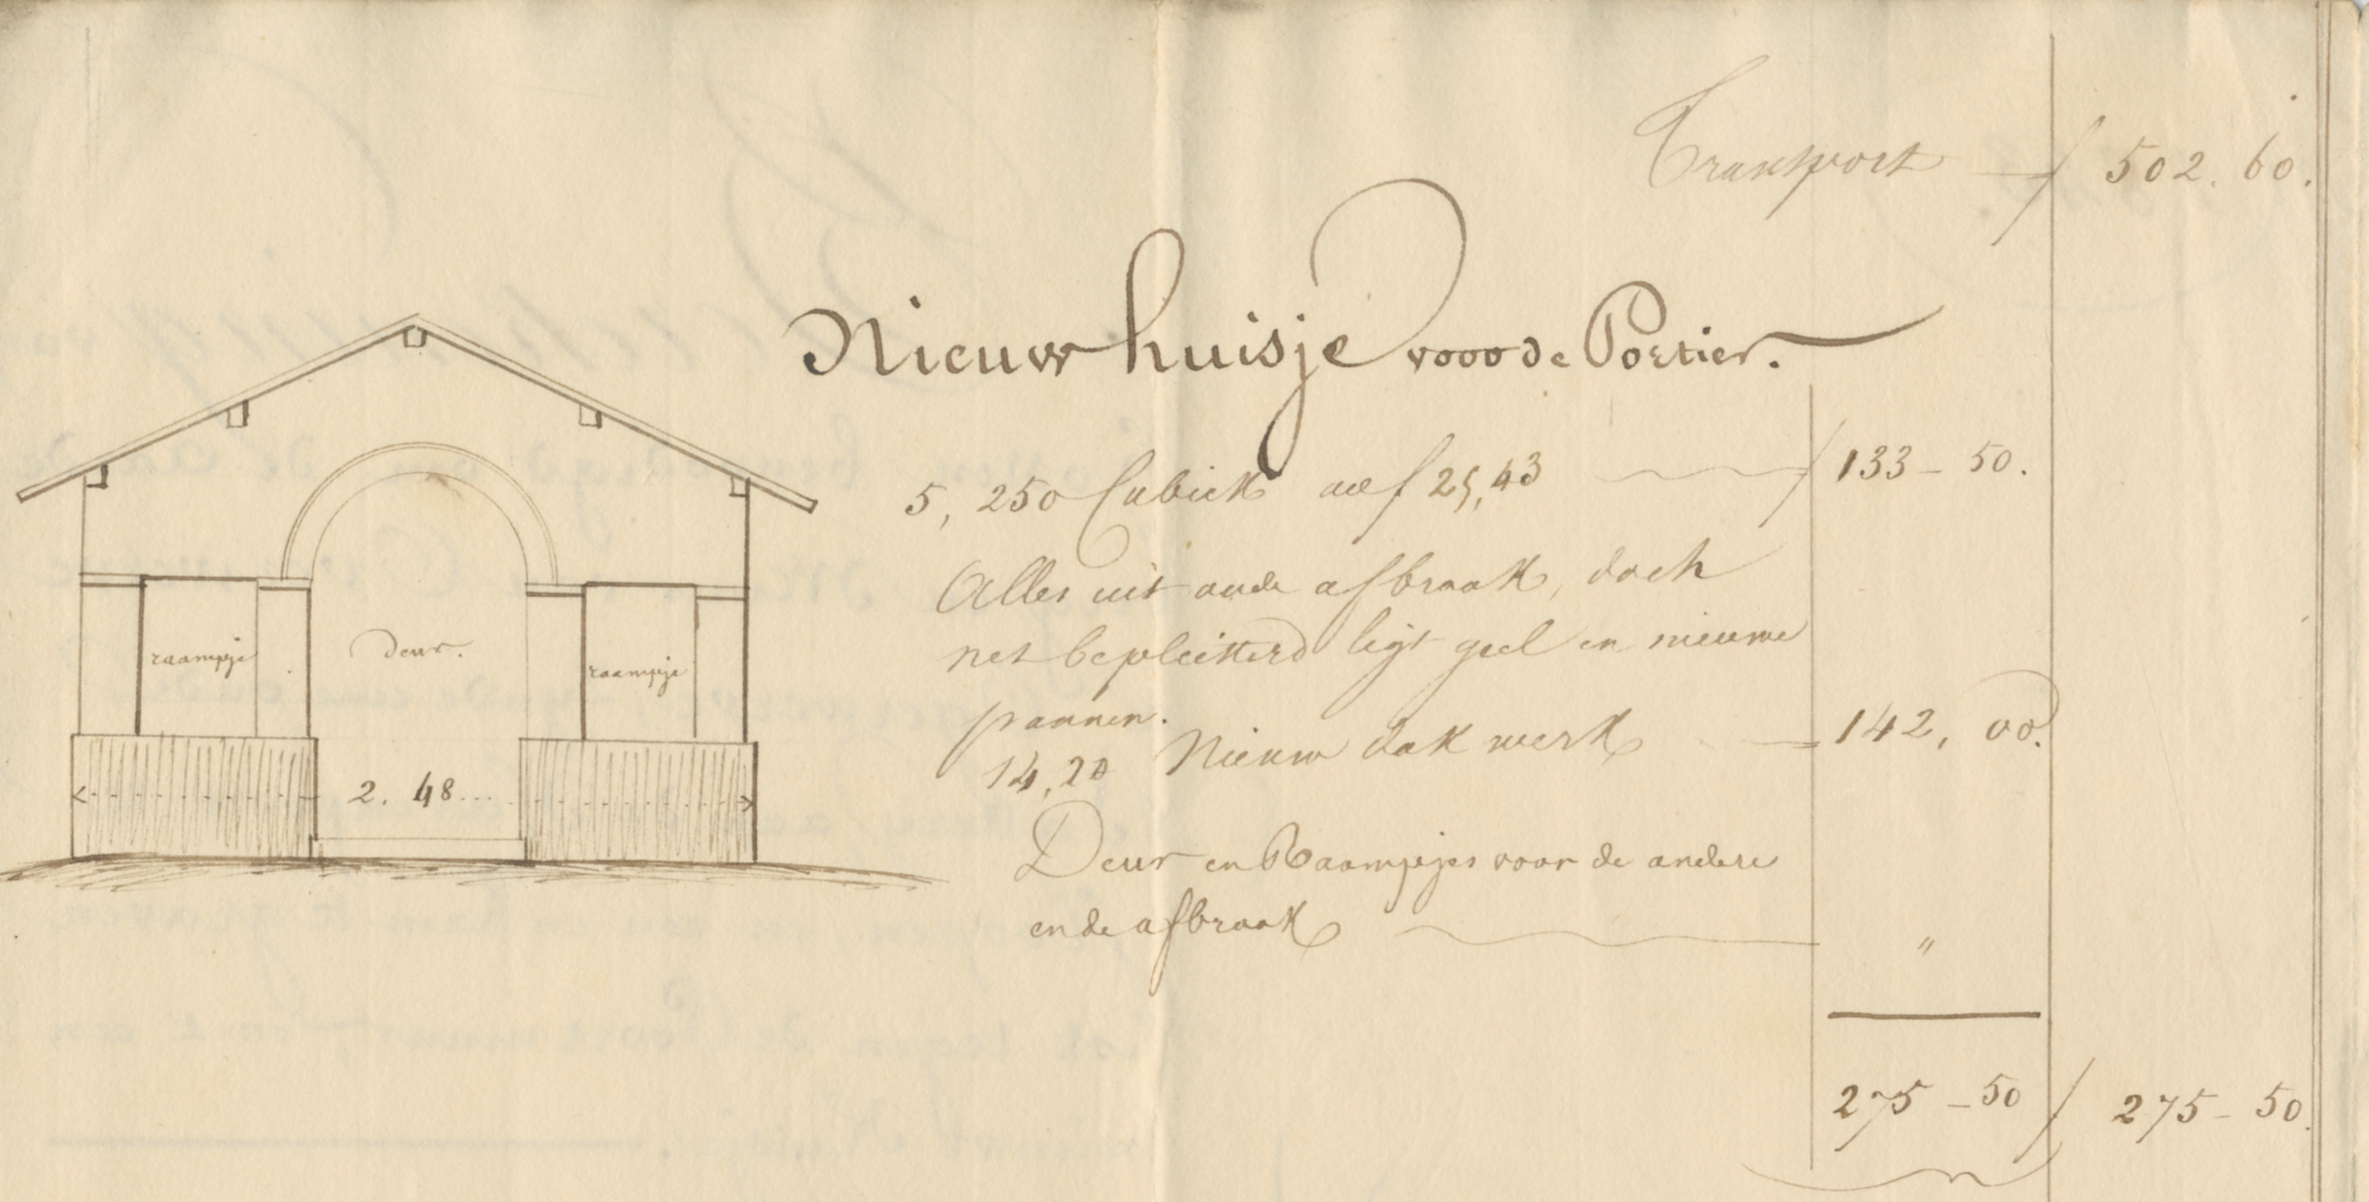 Transport f 502. 60.
Nieuw huisje vooo de Portier.
5, 250 Cubiek a f 25,43 f 133 - 50.
Alles uit oude afbraak, doch
net bepleisterd ligt geel en nieuwe
pannen.
14,20 Nieuw dak werk = 142, 00.
Deur en Raampjes voor de andere
en de afbraak "
275 - 50 f 275 - 50.
raampje deur. raampje
2. 48...